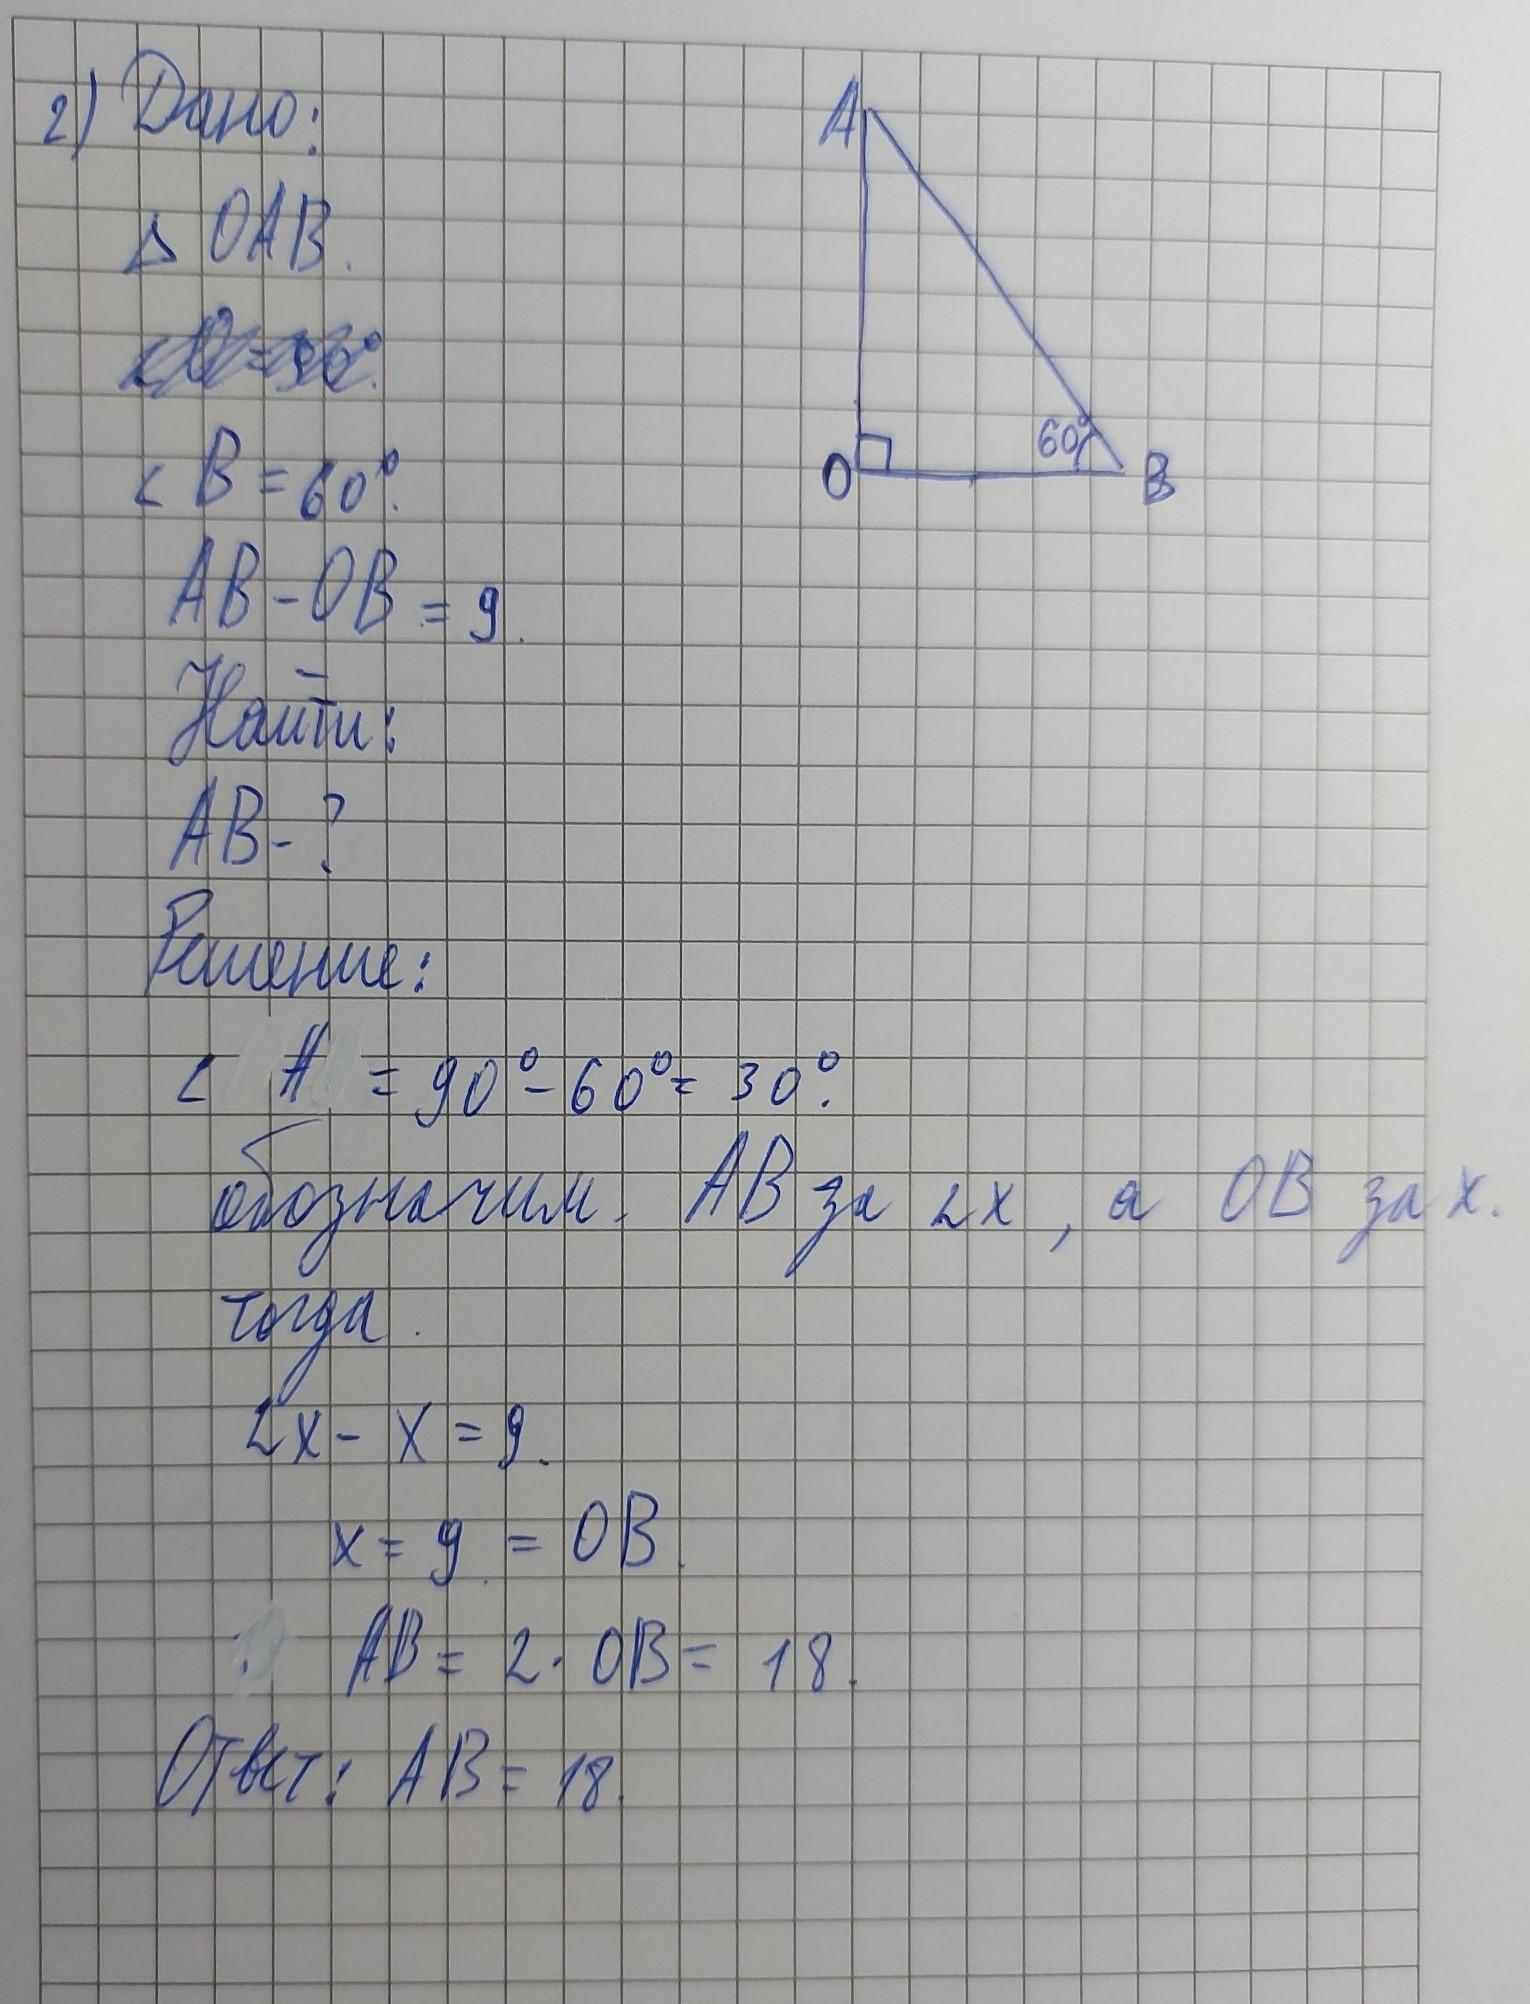 2) Дано:
△ OAB.
< B = 60°.
AB - OB = 9.
Найти:
AB - ?
Решение:
< A = 90° - 60° = 30°.
обозначим. AB за 2x, а OB за x.
тогда.
2x - x = 9.
x = 9 = OB.
AB = 2 · OB = 18.
Ответ: AB = 18.
A
60°
O
B